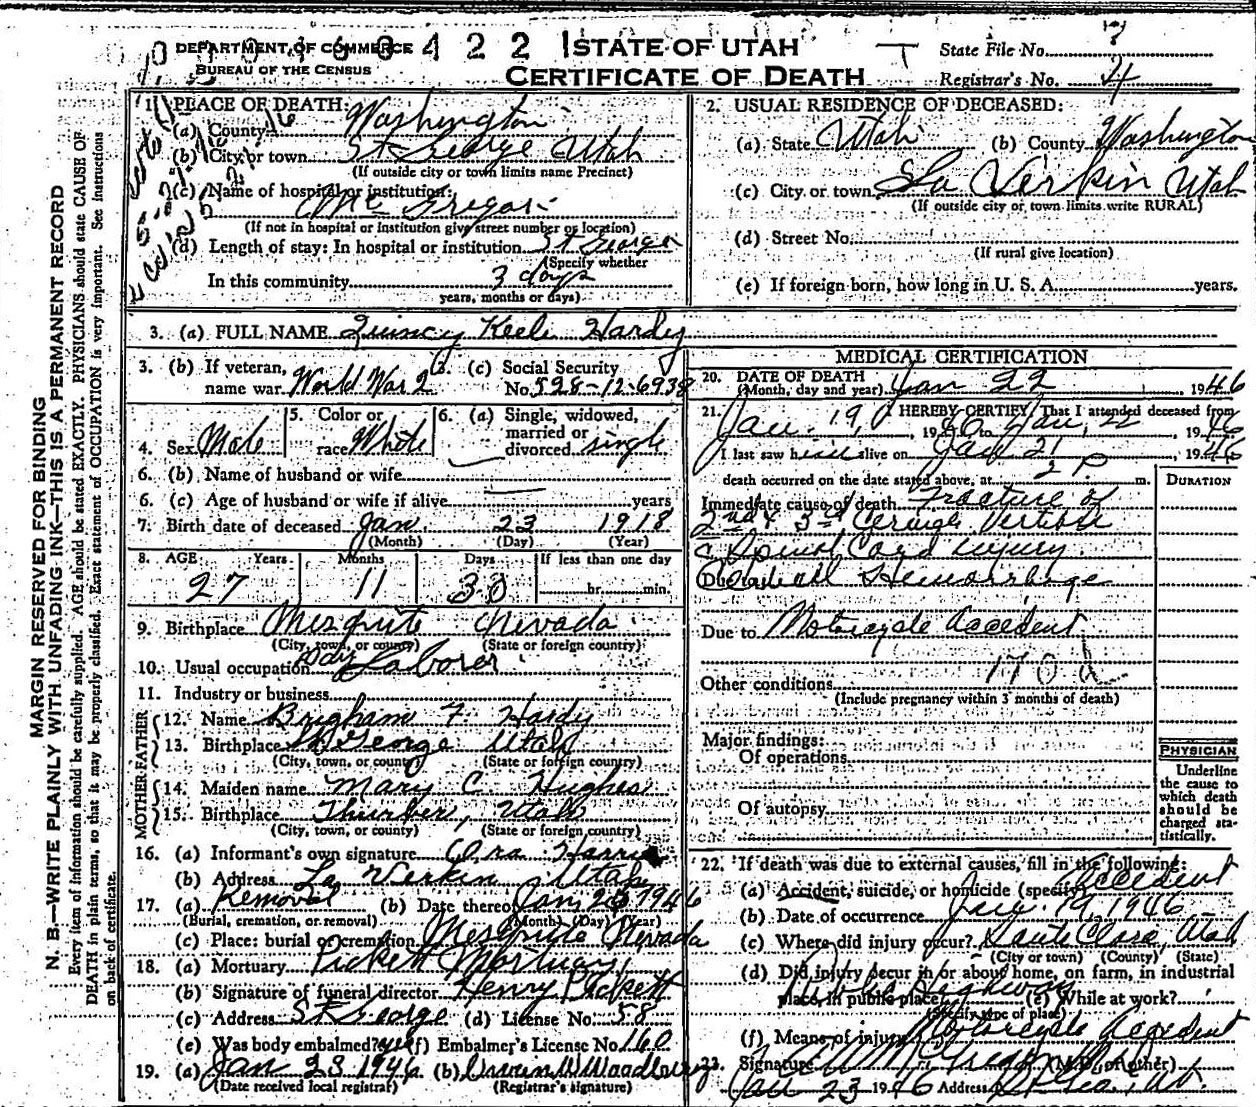 DEPARTMENT OF COMMERCE
BUREAU OF THE CENSUS
422
STATE OF UTAH
CERTIFICATE OF DEATH
T
State File No. 7
Registrar's No. 4
MARGIN RESERVED FOR BINDING
N. B—WRITE PLAINLY WITH UNFADING INK—THIS IS A PERMANENT RECORD
Every item of information should be carefully supplied. AGE should be stated EXACTLY. PHYSICIANS should state CAUSE OF
DEATH in plain terms, so that it may be properly classified. Exact statement of OCCUPATION is very important. See instructions
on back of certificate.
1. PLACE OF DEATH:
(a) County Washington
(b) City or town St George Utah
(If outside city or town limits name Precinct)
(c) Name of hospital or institution:
Mc Gregor
(If not in hospital or institution give street number or location)
(d) Length of stay: In hospital or institution St George
(Specify whether
In this community 3 days
years, months or days)
2. USUAL RESIDENCE OF DECEASED:
(a) State Utah (b) County Washington
(c) City or town La Verkin Utah
(If outside city or town limits write RURAL)
(d) Street No.
(If rural give location)
(e) If foreign born, how long in U. S. A. years.
3. (a) FULL NAME Quincy Keele Hardy
3. (b) If veteran, name war World War 2
3. (c) Social Security No. 528-12-6938
4. Sex Male
5. Color or race White
6. (a) Single, widowed, married or divorced single
6. (b) Name of husband or wife
6. (c) Age of husband or wife if alive years
7. Birth date of deceased Jan. 23 1918
(Month) (Day) (Year)
8. AGE Years Months Days If less than one day
27 11 30 hr. min.
9. Birthplace Mesquite Nevada
(City, town, or county) (State or foreign country)
10. Usual occupation Day Laborer
11. Industry or business
FATHER
12. Name Brigham F. Hardy
13. Birthplace St George Utah
(City, town, or county) (State or foreign country)
MOTHER
14. Maiden name Mary C Hughes
15. Birthplace Thurber, Utah
(City, town, or county) (State or foreign country)
16. (a) Informant's own signature Harris
(b) Address La Verkin Utah
17. (a) Removal (b) Date thereof Jan 1946
(Burial, cremation, or removal) (Month) (Day) (Year)
(c) Place: burial or cremation Mesquite Nevada
18. (a) Mortuary Pickett Mortuary
(b) Signature of funeral director Henry Pickett
(c) Address St George (d) License No. 58
(e) Was body embalmed? yes (f) Embalmer's License No. 160
19. (a) Jan 23 1946 (b) Woodbury
(Date received local registrar) (Registrar's signature)
MEDICAL CERTIFICATION
20. DATE OF DEATH
(Month, day and year) Jan 22 1946
21. I HEREBY CERTIFY, That I attended deceased from
Jan. 19, 19 to Jan, 22, 1946
I last saw him alive on Jan 21, 1946
death occurred on the date stated above, at 2 P m.
DURATION
Immediate cause of death Fracture of
2nd & 3rd
Spinal Cord injury
Due to Hemorrhage
Due to Motorcycle accedent
170 d
Other conditions
(Include pregnancy within 3 months of death)
Major findings:
Of operations
Of autopsy
PHYSICIAN
Underline
the cause to
which death
should be
charged sta-
tistically.
22. If death was due to external causes, fill in the following:
(a) Accident, suicide, or homicide (specify) Accedent
(b) Date of occurrence Jan. 19, 1946
(c) Where did injury occur? Santa Clara, Utah
(City or town) (County) (State)
(d) Did injury occur in or about home, on farm, in industrial
place, in public place? Public Highway (e) While at work?
(Specify type of place)
(f) Means of injury Motorcycle Accedent
23. Signature McGregor (M. D. or other)
Jan 23 1946 Address St Geo. Ut.